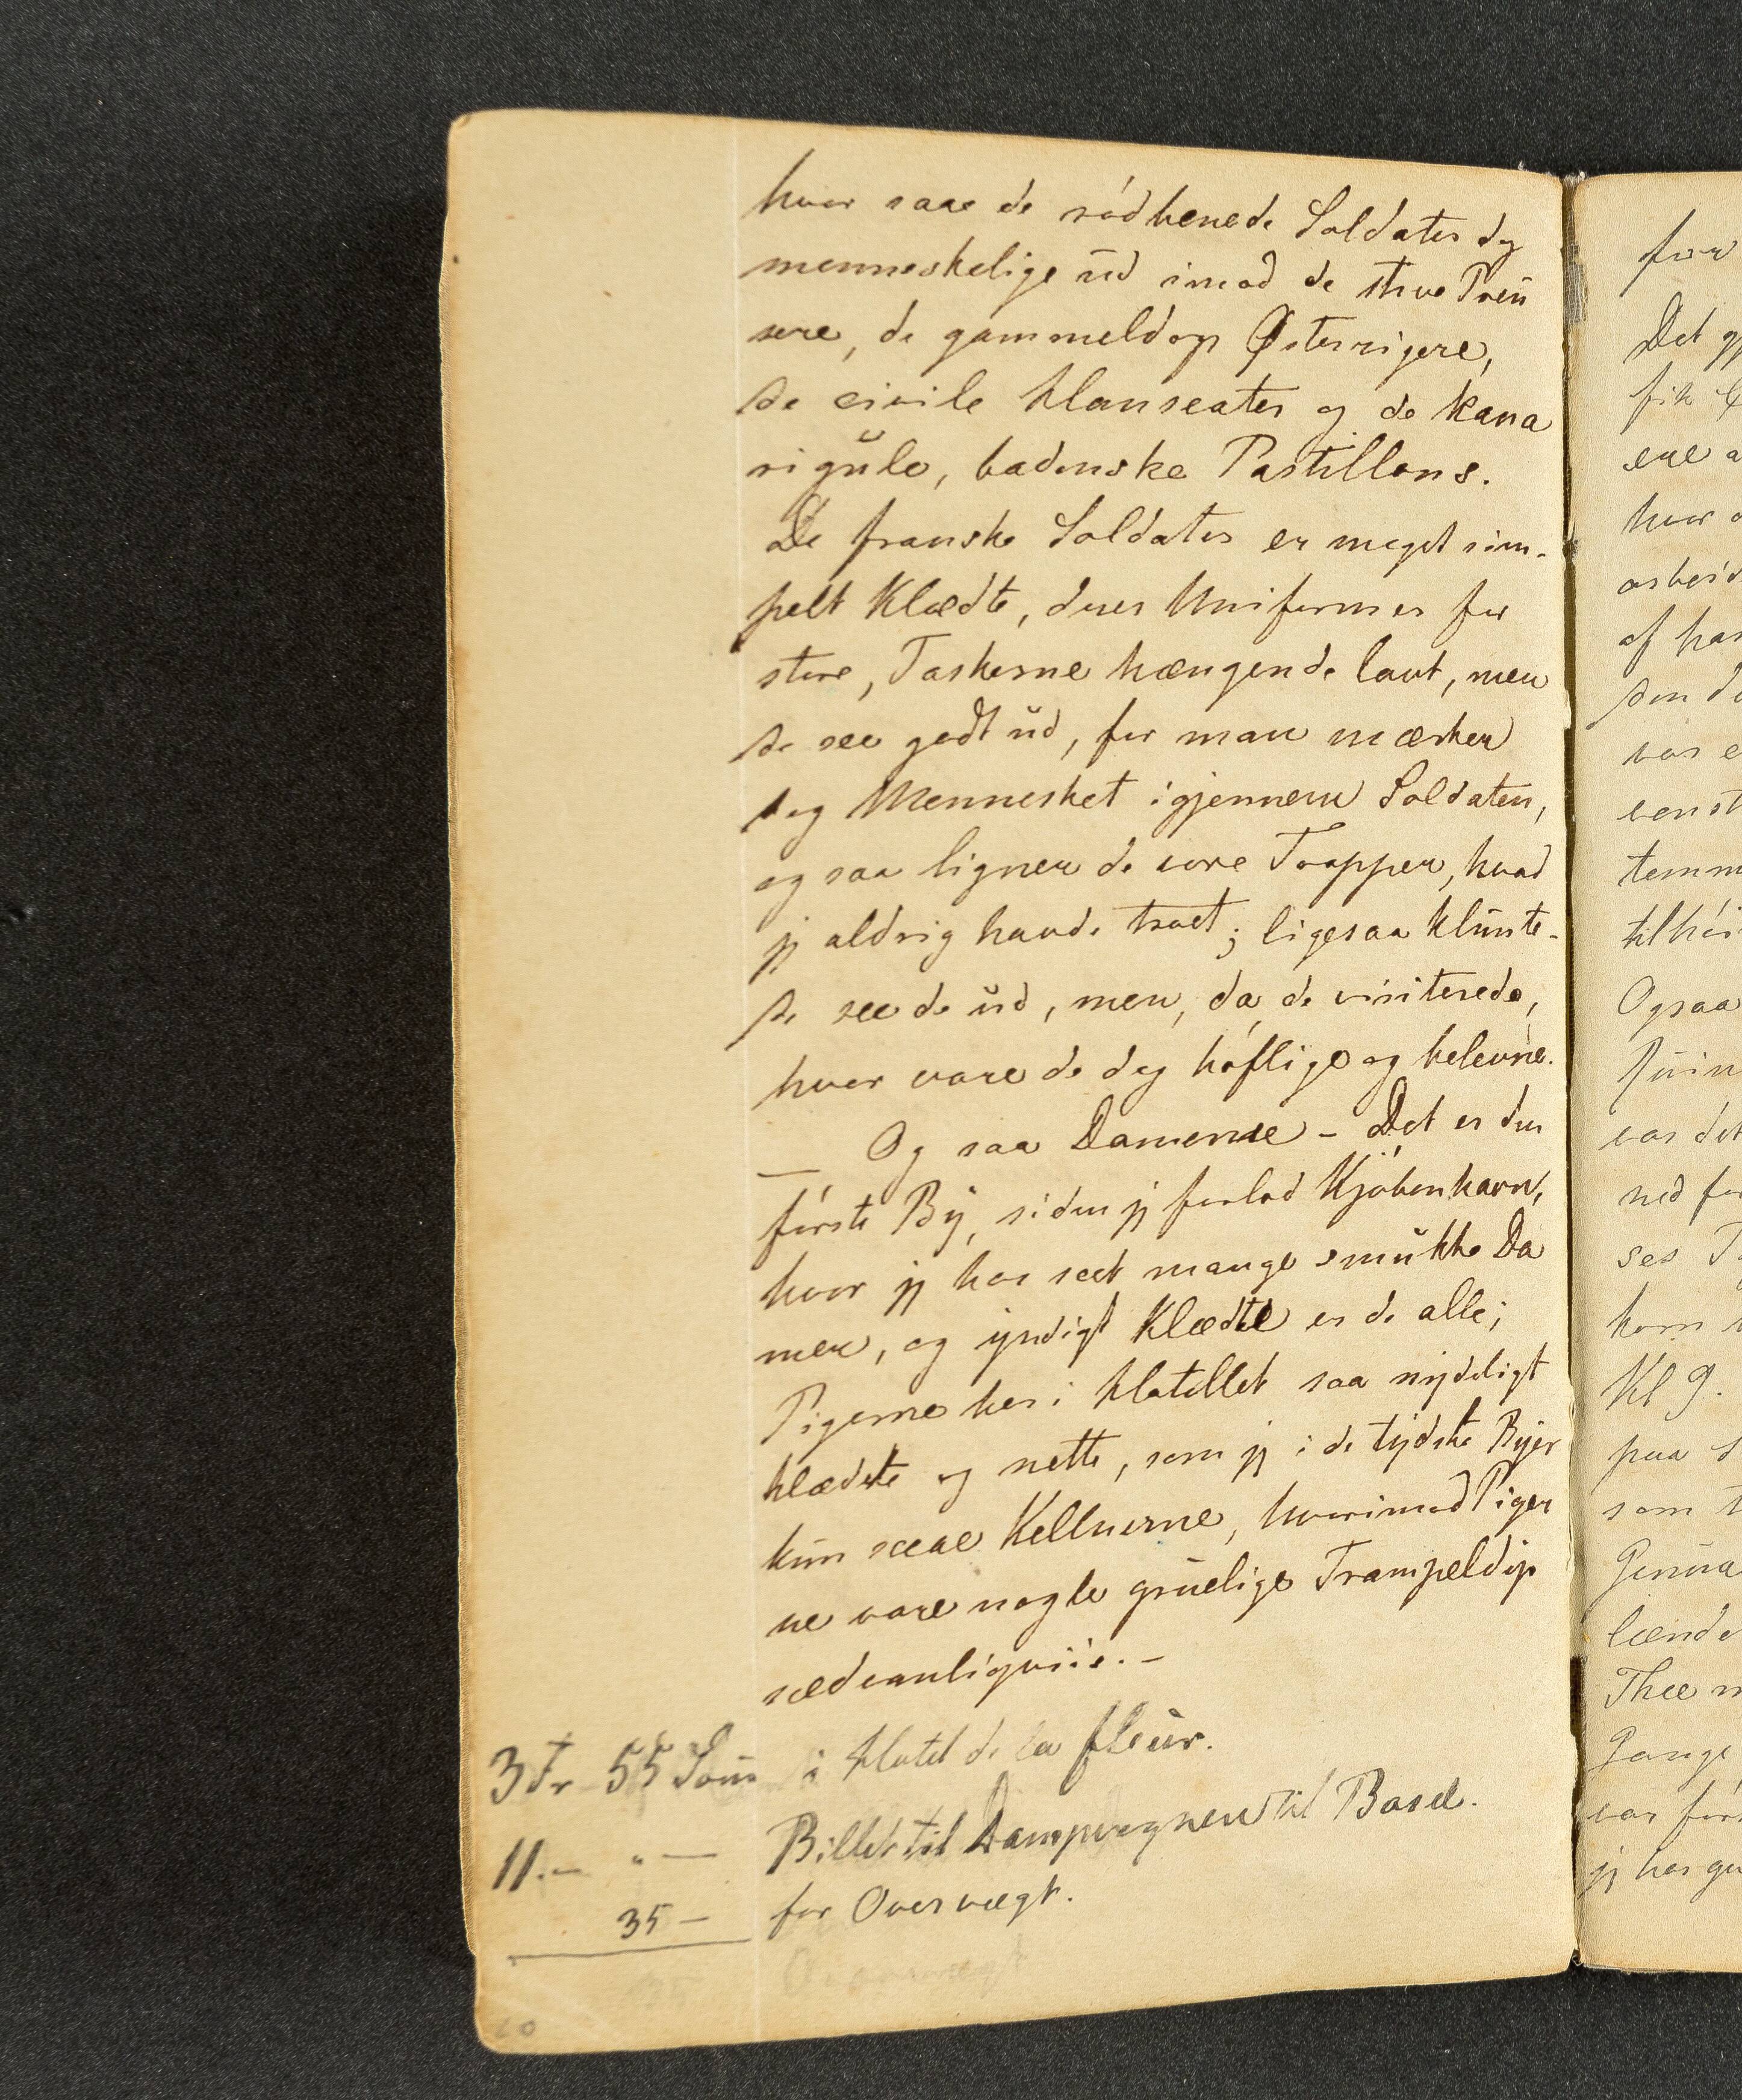 hvor saae de rødbenede Soldater dog
menneskelige ud imod de stive Preu
sere, de gammeldags Østerrigere,
de civile Hanseater og de kana
rigule, badenske Postillons.
De franske Soldater er meget sim-
pelt klædte, deres Uniformer for
store, Taskerne hængende lavt, men
de see godt ud, for man mærker
dog Mennesket igjennem Soldaten,
og saa ligner de vore Tropper, hvad
jeg aldrig havde troet; ligesaa klunte-
de see de ud, men, da de visiterede,
hvor vare de dog høflige og belevne.
— Og saa Damerne - Det er den
første By, siden jeg forlod Kjøbenhavn,
hvor jeg har seet mange smukke Da
mer, og yndigt klædte er de alle;
Pigerne her i Hotellet saa nydeligt
klædte og nette, som jeg i de tydske Byer
kun saae Kellnerne, hvorimod Piger
ne vare nogle gruelige Trampeldyr
sædvanligviis. -
3 Fr 55 Sous i Hotel de la fleur.
11.- " — Billet til Dampvognen til Basel.
35 - for Overvægt.
for
Det
fik
hvor
af
Ogsaa
var det
ned for
kom
Kl 9.
paa
som
Genua
Thee
Gange
jeg har